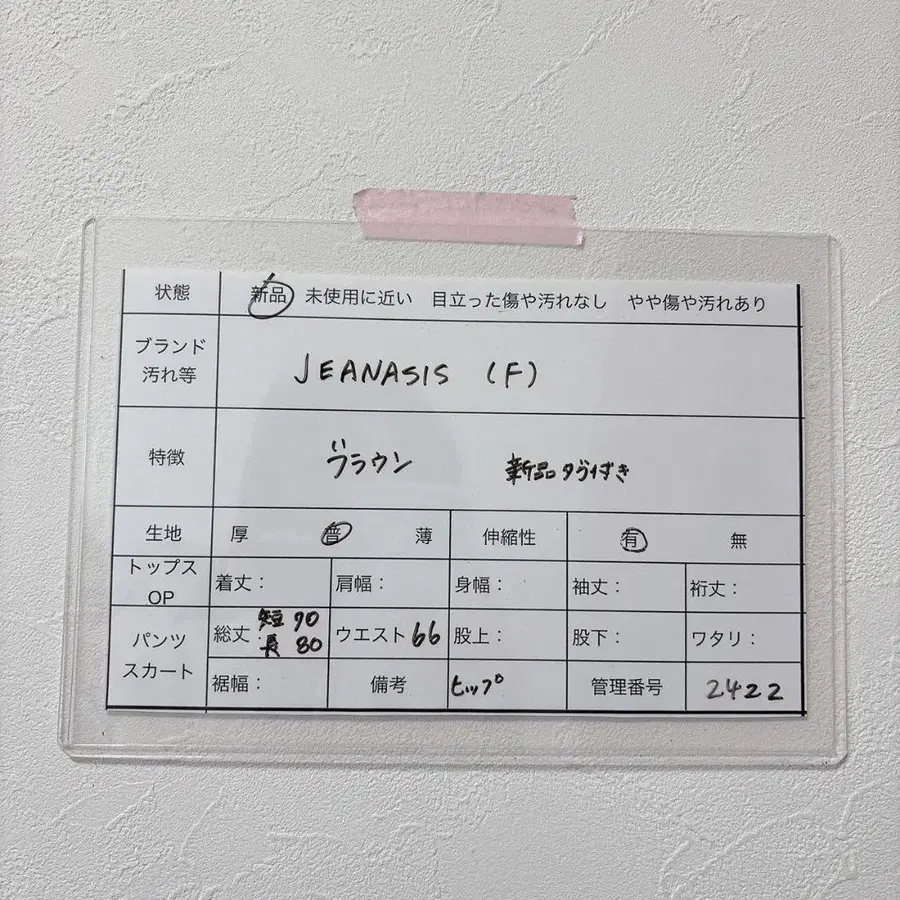 状態 新品 未使用に近い 目立った傷や汚れなし やや傷や汚れあり
ブランド
汚れ等 JEANASIS (F)
特徴 ブラウン 新品タグ付き
生地 厚 普 薄 伸縮性 有 無
トップス
OP 着丈: 肩幅: 身幅: 袖丈: 裄丈:
パンツ
スカート 総丈: 短 70
長 80 ウエスト 66 股上: 股下: ワタリ:
裾幅: 備考 ヒップ 管理番号 2422